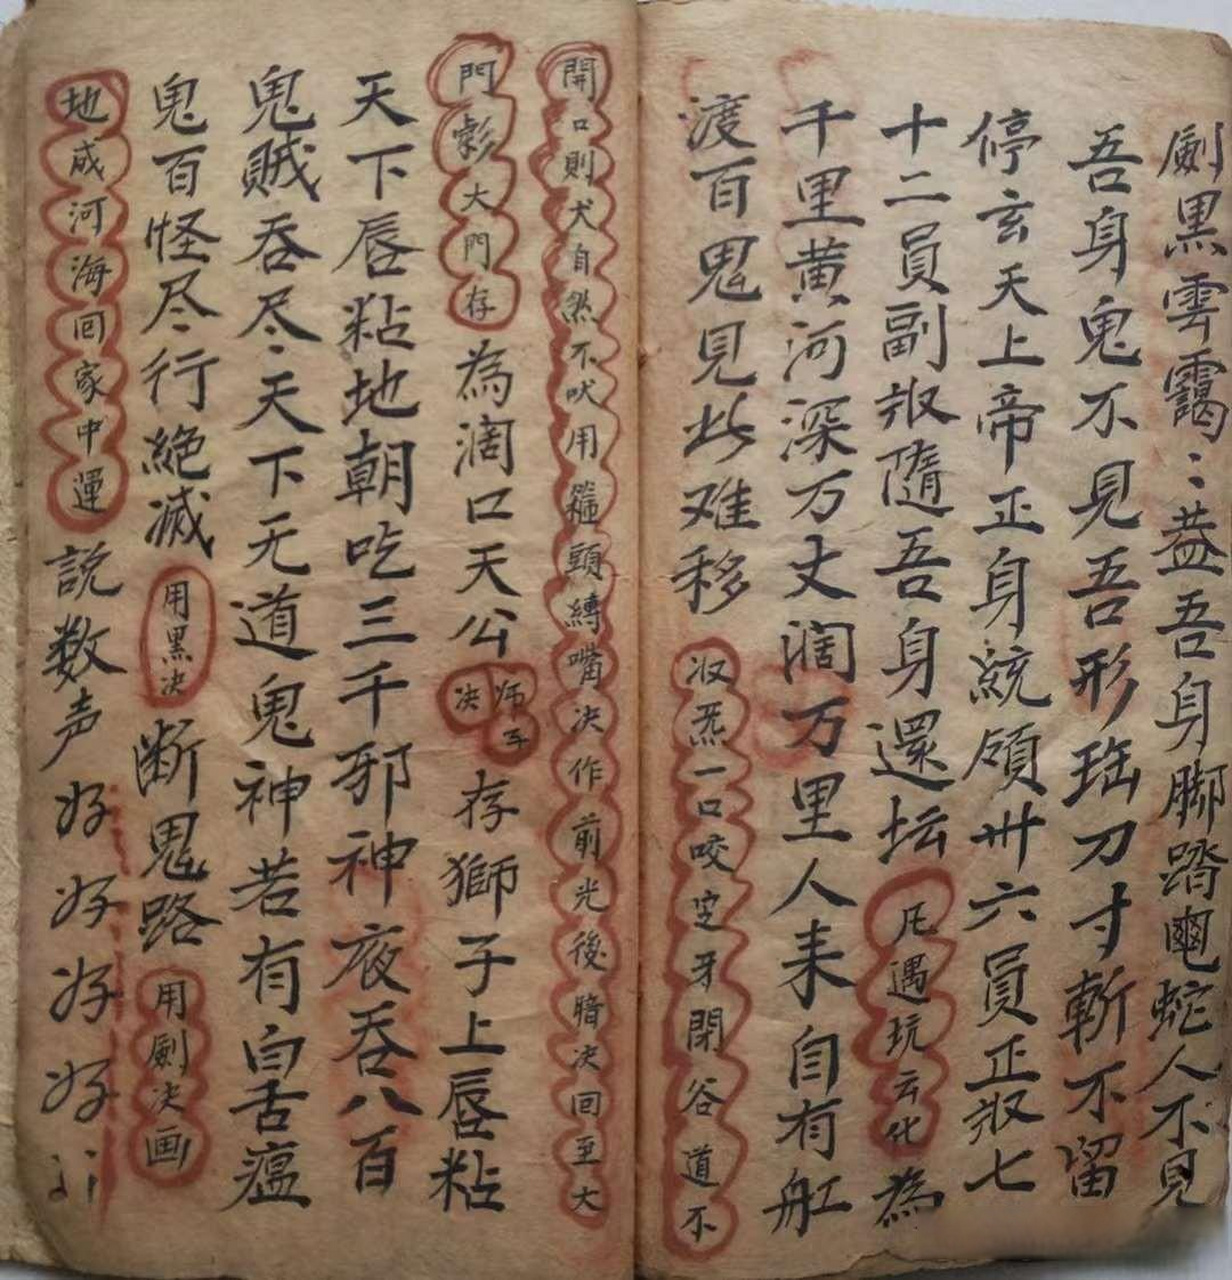 劍黑雲靄〻盖吾身脚踏龜蛇人不見
吾身鬼不見吾形瑶刀寸斬不留
停玄天上帝正身統領卅六員正将七
十二員副将隨吾身還坛凡遇坑云化為
千里黄河深万丈濶万里人来自有舡
渡百鬼見此难移収炁一口咬定牙閉谷道不
開口則犬自然不吠用箍頭縛嘴决作前光後暗决回至大
門彰大門存為濶口天公师子决存獅子上唇粘
天下唇粘地朝吃三千邪神夜吞八百
鬼賊吞尽天下无道鬼神若有白舌瘟
鬼百怪尽行絶滅用黑决断鬼路用劍决画
地成河海回家中運説数声好好好好